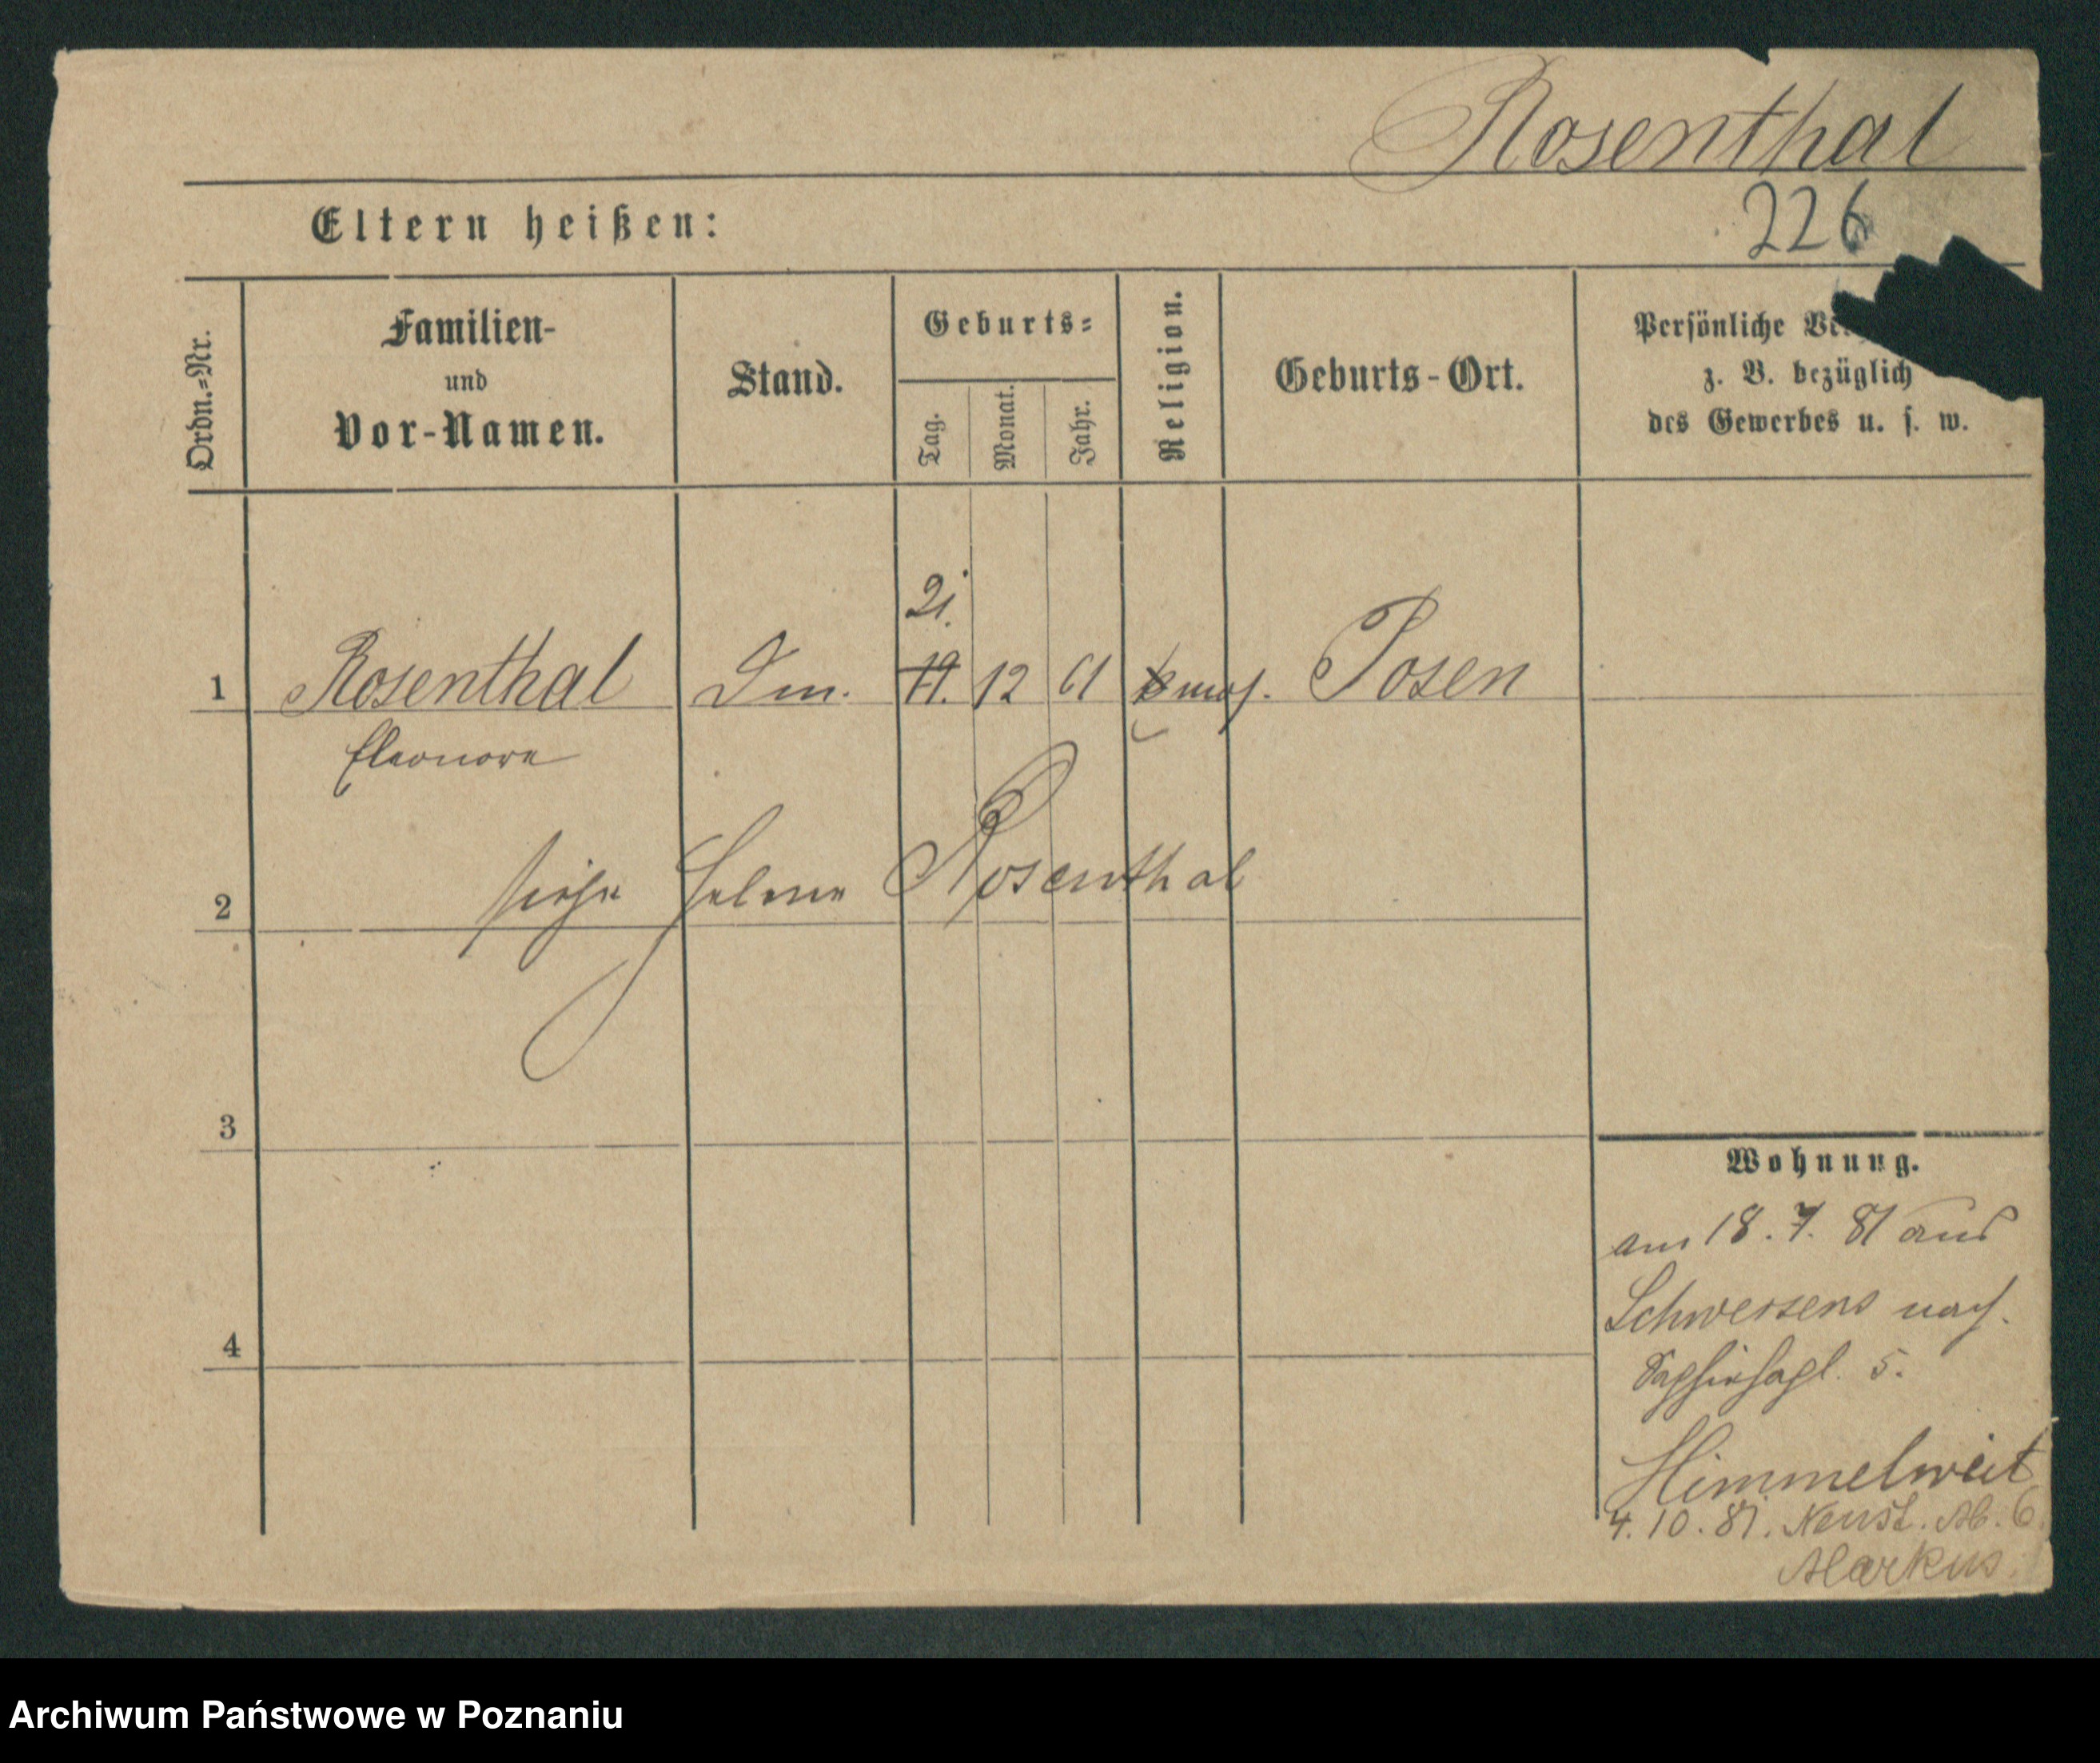 Rosenthal
226
Eltern heißen:
Ordn.-Nr.
Familien-
und
Vor-Namen.
Stand.
Geburts-
Tag.
Monat.
Jahr.
Religion.
Geburts-Ort.
Persönliche
z. B. bezüglich
des Gewerbes u. s. w.
21.
1 Rosenthal 19. 12 61 mos. Posen
Eleonore
2 siehe Rosenthal
3
4
Wohnung.
am 18. 7. 81 aus
Schwersens nach
5.
Himmelweit
4. 10. 81. Neust. M. 6
Markus.
Archiwum Państwowe w Poznaniu